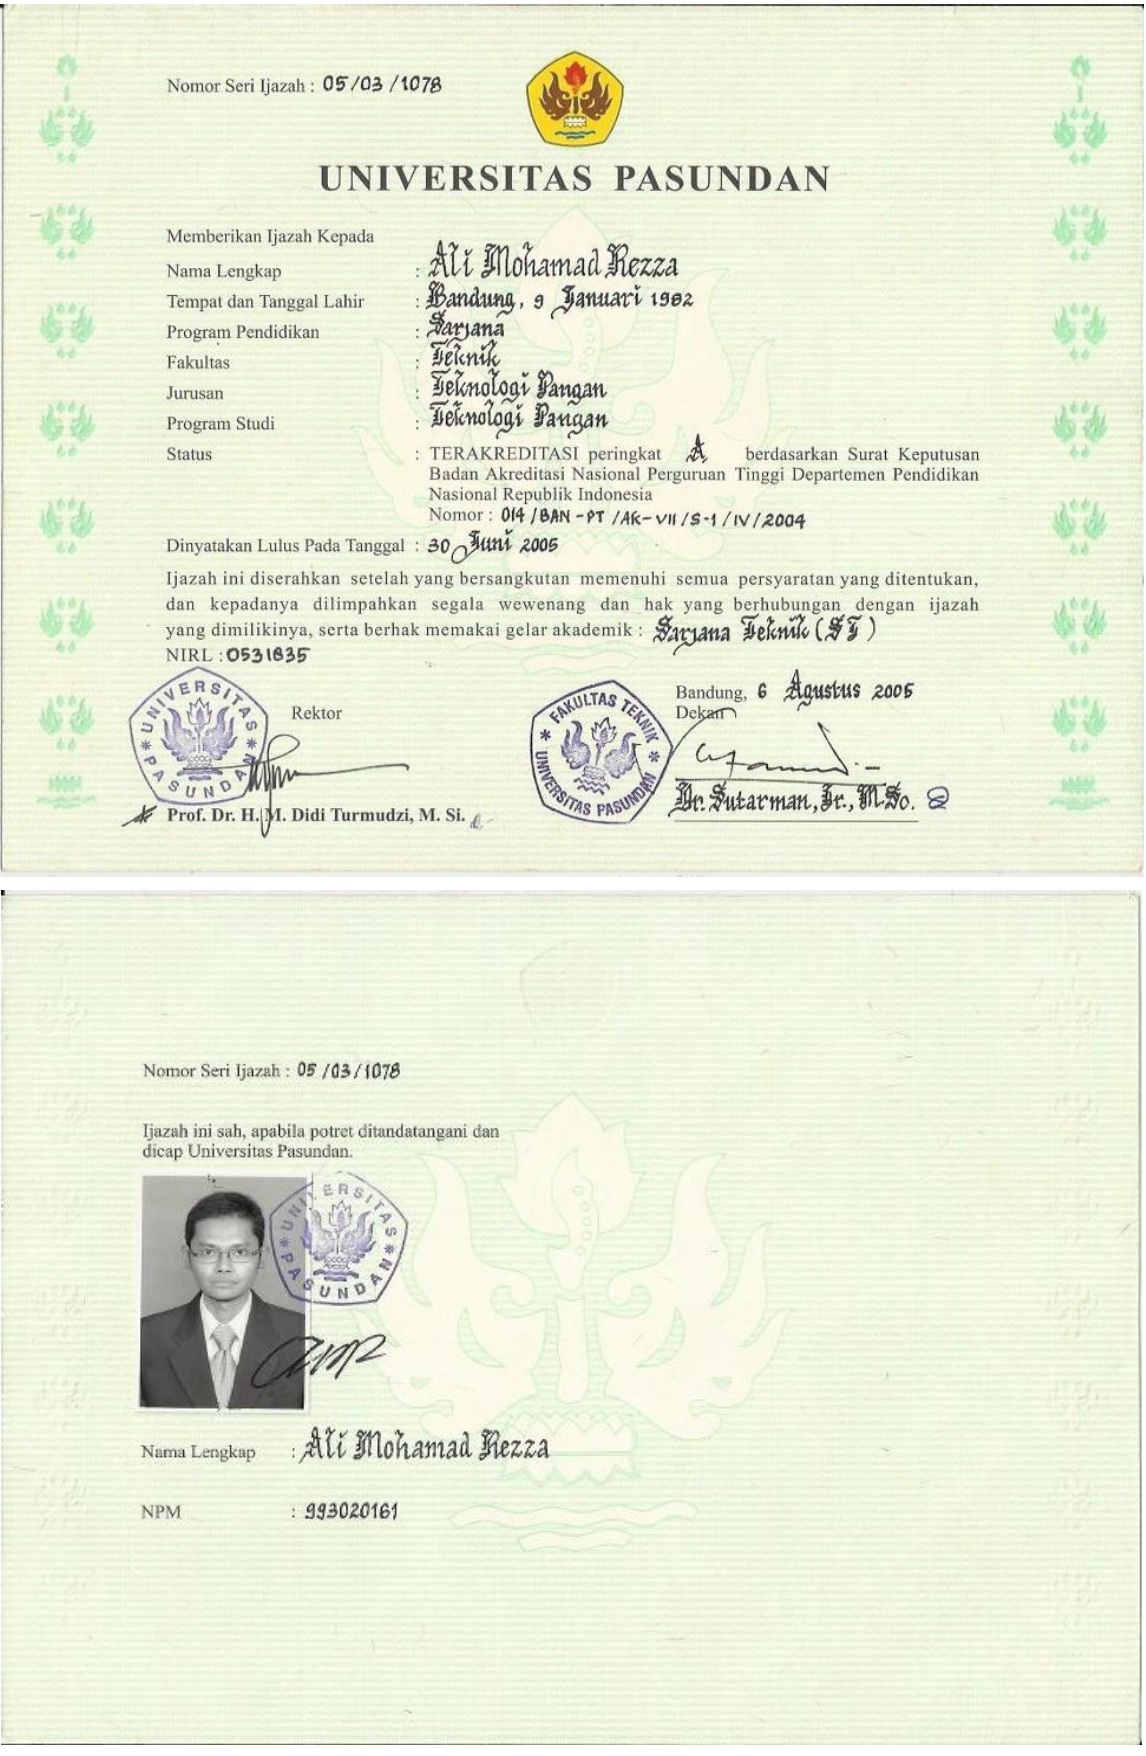 Nomor Seri Ijazah : 05/03/1078
UNIVERSITAS PASUNDAN
Memberikan Ijazah Kepada
Nama Lengkap : Ali Mohamad Rezza
Tempat dan Tanggal Lahir : Bandung, 9 Januari 1982
Program Pendidikan : Sarjana
Fakultas : Teknik
Jurusan : Teknologi Pangan
Program Studi : Teknologi Pangan
Status : TERAKREDITASI peringkat A berdasarkan Surat Keputusan
Badan Akreditasi Nasional Perguruan Tinggi Departemen Pendidikan
Nasional Republik Indonesia
Nomor : 014/BAN-PT/AK-VII/S-1/IV/2004
Dinyatakan Lulus Pada Tanggal : 30 Juni 2005
Ijazah ini diserahkan setelah yang bersangkutan memenuhi semua persyaratan yang ditentukan,
dan kepadanya dilimpahkan segala wewenang dan hak yang berhubungan dengan ijazah
yang dimilikinya, serta berhak memakai gelar akademik : Sarjana Teknik (ST)
NIRL : 0531835
Bandung, 6 Agustus 2005
Rektor
Dekan
UNIVERSITAS PASUNDAN
FAKULTAS TEKNIK
UNIVERSITAS PASUNDAN
Prof. Dr. H. M. Didi Turmudzi, M. Si.
Dr. Sutarman, Ir., M.Sc.
Nomor Seri Ijazah : 05/03/1078
Ijazah ini sah, apabila potret ditandatangani dan
dicap Universitas Pasundan.
UNIVERSITAS PASUNDAN
Nama Lengkap : Ali Mohamad Rezza
NPM : 993020161